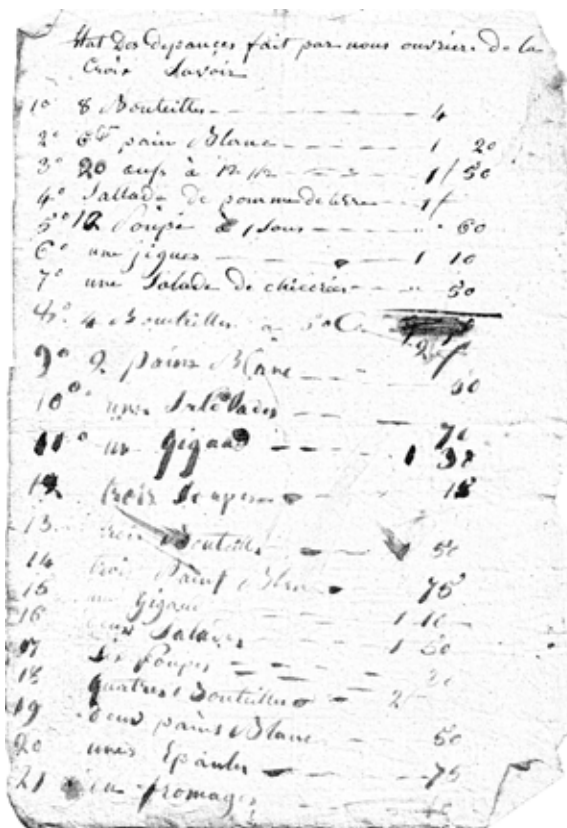 Etat Des depances fait par nous ouvriers de la
Croix Savoir
1º 8 Bouteilles 4
2º 6 pain Blanc 1 20
3º 20 aufs à 1 f 50
4º Sallade de pomme de terre 1 f
5º 12 Soupé à 1 Sous 60
6º une jigues 1 10
7º une Salade de chicorés 50
4 Bouteilles a 50 C 2 f
9º 2 pains Blanc 60
10º une 70
11º un gigaud 1 38
12 trois Soupes 18
13 trois Bouteille 50
14 trois Paint Blan 75
15 un gigaud 1 10
16 deux Salades 1 50
17 Soupes
18 quatres Bouteilles 2 f
19 deux pains Blanc 50
20 unes Epaules 75
21 fromages